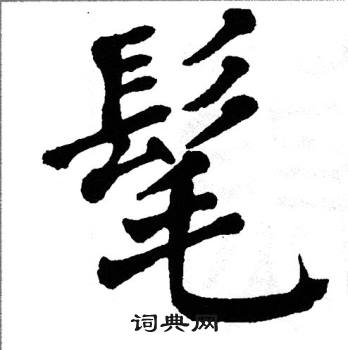 髦
词典网